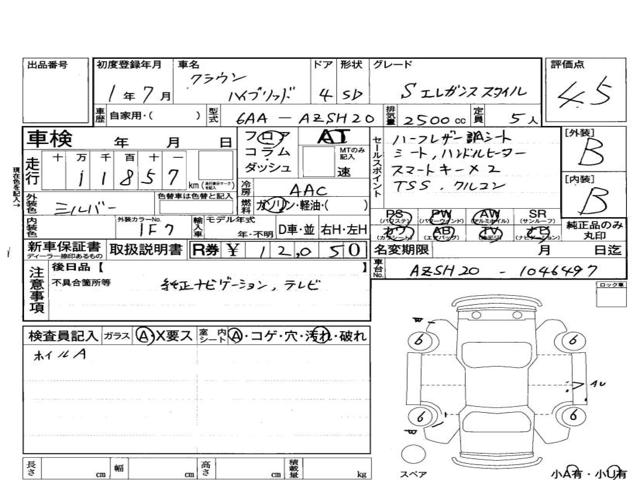 出品番号 初度登録年月 車名 ドア 形状 グレード 評価点
1年7月 クラウン ハイブリッド 4 SD Sエレガンススタイル 4.5
車歴 自家用・( ) 型式 6AA-AZSH20 排気量 2500cc 定員 5人
車検 年 月 日 フロア コラム ダッシュ AT MTのみ記入 速
セールスポイント ハーフレザー調シート
シート,ハンドルヒーター
スマートキー×2
TSS.クルコン
[外装] B
[内装] B
走行 十万千百十 11857 km
冷房 AAC
現在色を記入→
外装色 シルバー 色替車は色替と記入 燃料 ガソリン・軽油・( )
PS (パワステ) PW (パワーウィンドウ) AW (アルミホイル) SR (サンルーフ) 純正品のみ丸印
カワ (カワシート) AB (エアバッグ) TV (テレビ) ナビ (ナビゲーション)
内装色 外装カラーNo. 1F7 輸入車 モデル年式 年・不明 D車・並 右H・左H
新車保証書 ディーラー捺印あるもの 取扱説明書 R券 ¥12,050 名変期限 月 日迄
車台No. AZSH20-1046497
注意事項 後日品【
不具合箇所等 純正ナビゲーション,テレビ
ロック車
検査員記入 ガラス A・X要ス 室内シート A・コゲ・穴・汚れ・破れ
ホイルA
6 6
6 6
A4
長さ cm 幅 cm 高さ cm 積載量 kg スペア 小A有・小U有